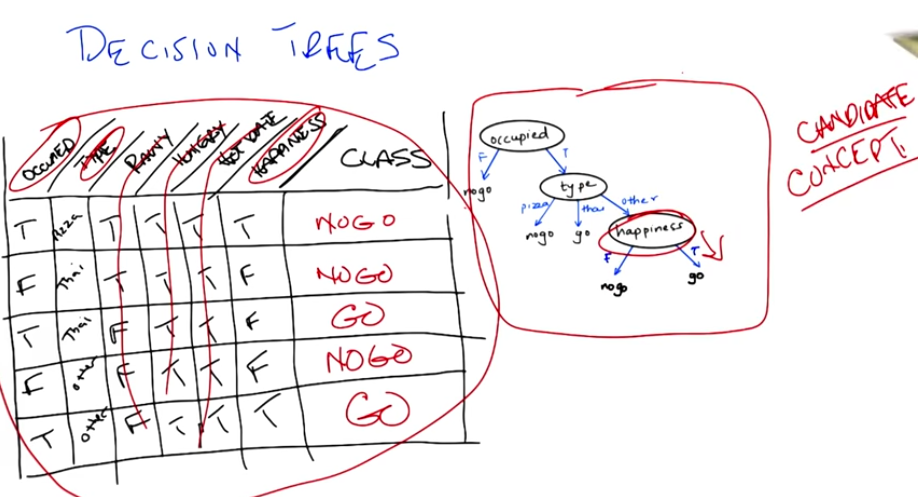 DECISION TREES
OCCUPIED TYPE RAINY HUNGRY HOT DATE HAPPINESS CLASS
T Pizza T T T T NOGO
F Thai T T T F NOGO
T Thai F T T F GO
F other F T T F NOGO
T other F T T T GO
occupied
F T
nogo type
pizza thai other
nogo go happiness
F T
nogo go
CANDIDATE
CONCEPT